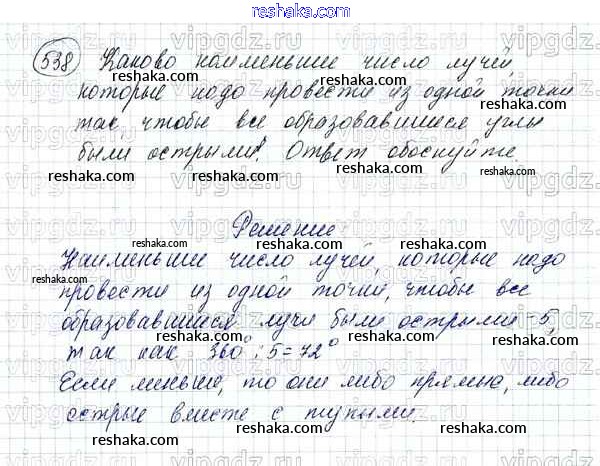 reshaka.com
538 Каково наименьшие число лучей,
которые надо провести из одной точки
так, чтобы все образовавшиеся углы
были острыми? Ответ обоснуйте.
Решение
Наименьшие число лучей, которые надо
провести из одной точки, чтобы все
образовавшиеся лучи были острыми - 5,
так как 360° : 5 = 72°
Если меньше, то они либо прямые, либо
острые вместе с тупыми.
reshaka.com